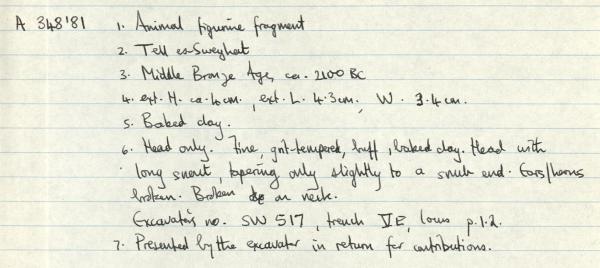 A 348'81 1. Animal figurine fragment
2. Tell es-Sweyhat
3. Middle Bronze Age, ca. 2100 BC
4. ext. H. ca. 4 cm., ext. L. 4.3 cm., W. 3.4 cm.
5. Baked clay.
6. Head only. Fine, grit-tempered, buff, baked clay. Head with
long snout, tapering only slightly to a snub end. Ears/horns
broken. Broken on neck.
Excavator's no. SW 517, trench VE, locus p.1.2.
7. Presented by the excavator in return for contributions.